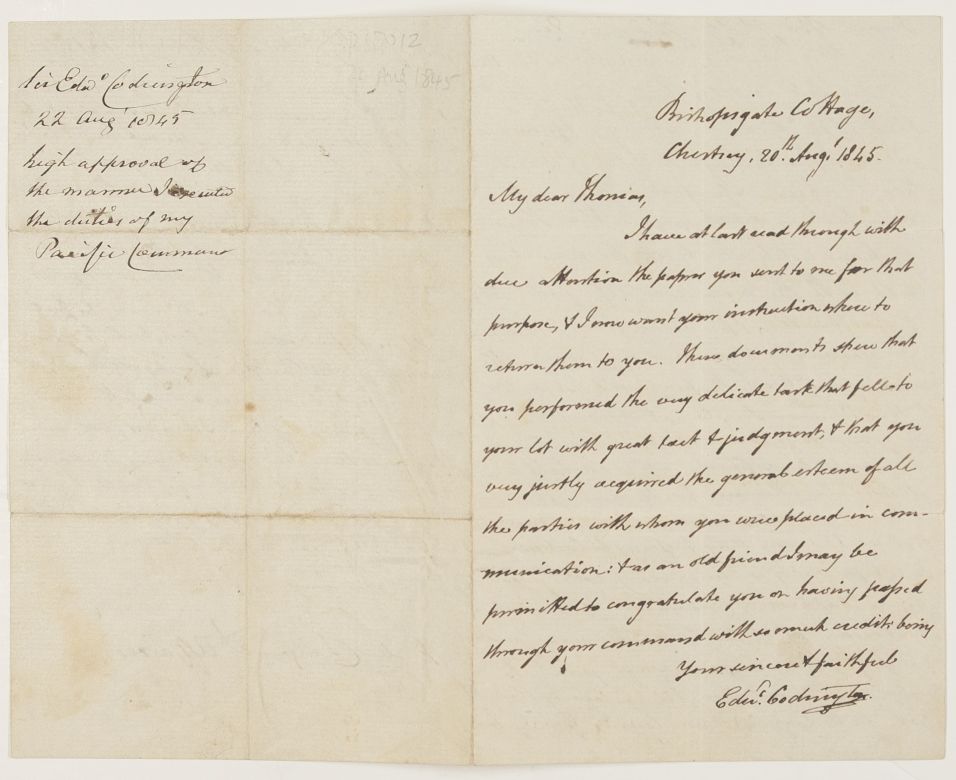 Sir Edwd Codrington
22 Augt 1845
high approval of
the manner I executed
the duties of my
Pacific Command
Augt 1845
Bishopsgate Cottage,
Chertsey, 20th. Augt. 1845.
My dear Thomas,
I have at last read through with
due attention the papers you sent to me for that
purpose, & I now want your instruction where to
return them to you. These documents shew that
you performed the very delicate task that fell to
your lot with great tact & judgment, & that you
very justly acquired the general esteem of all
the parties with whom you were placed in com-
munication: & as an old friend I may be
permitted to congratulate you on having passed
through your command with so much credit: being
Your sincere & faithful
Edwd. Codrington.